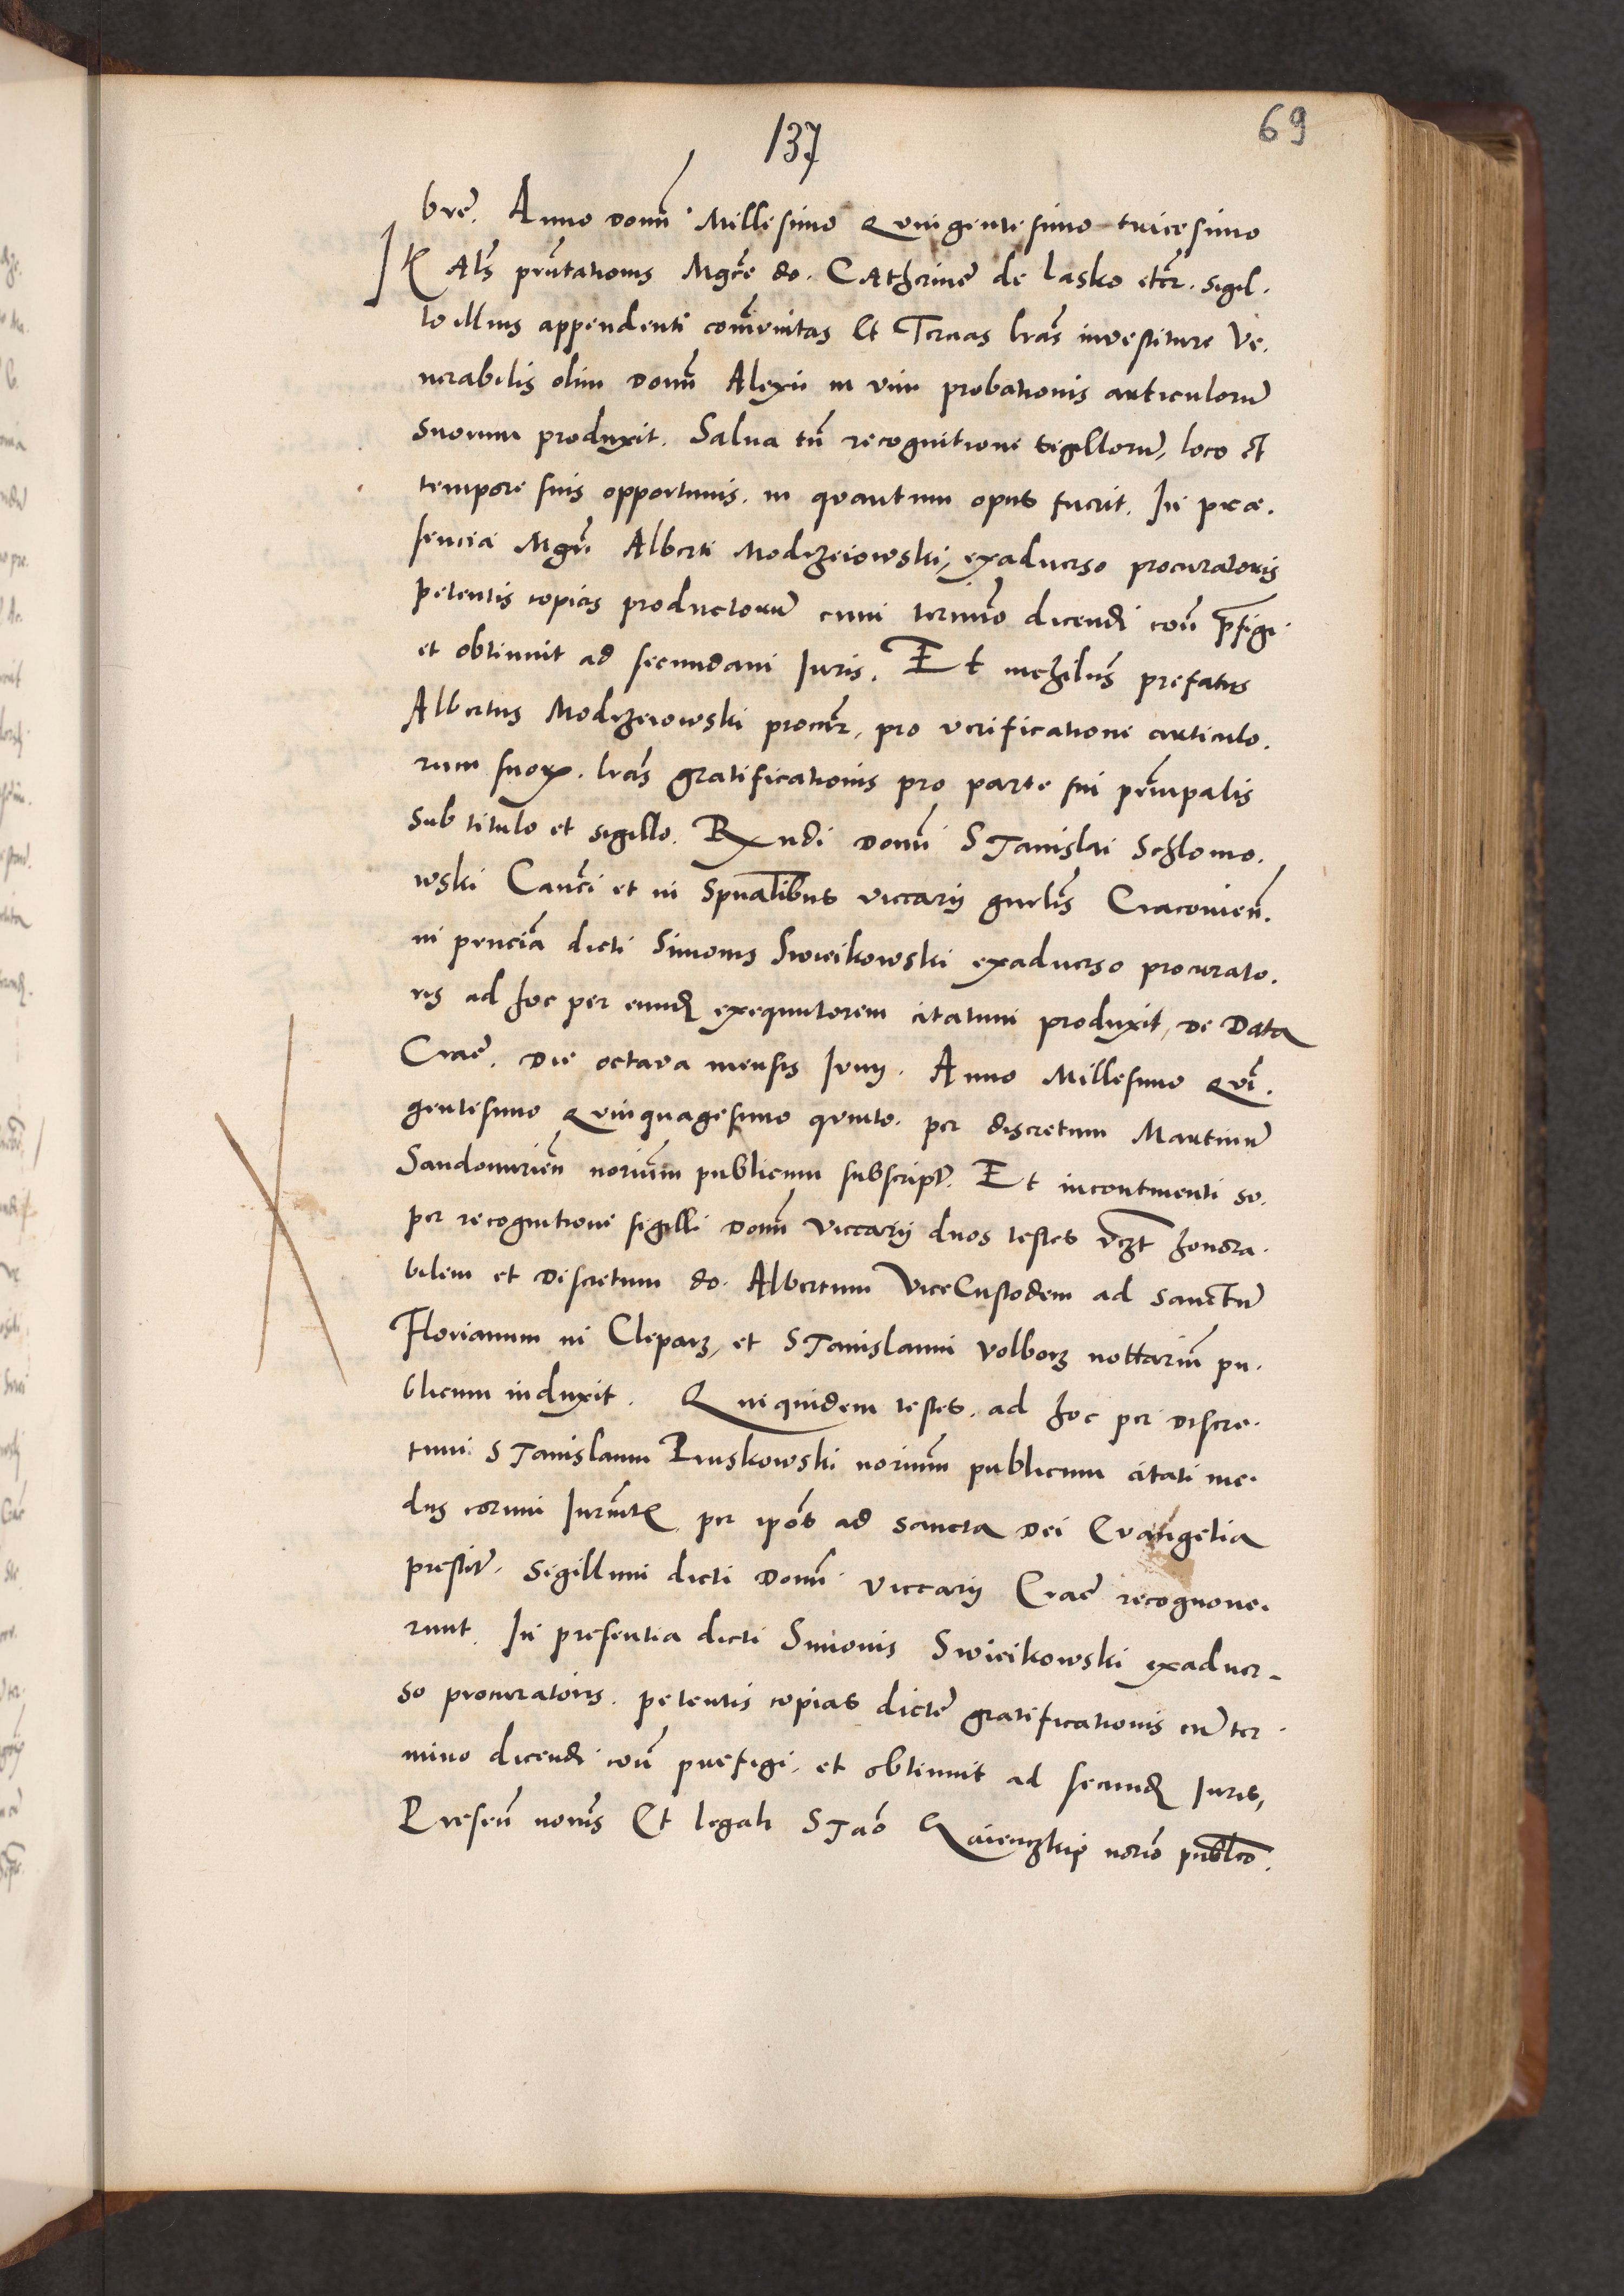 137
69
bre͂. Anno Domĩ Millesimo Quingentesimo tricesimo
Als prñtationis Mgce do. CAtherine de Lasko etcr. sigil.
lo illius appendenti com̃unitas Et Tercias lrãs investiture Ve.
nerabilis olim Domĩ Alexii in vim probationis articulorũ
suorum produxit. Salva tñ recognitione sigillorũ, loco et
tempore suis opportunis. in quantum opus fuerit. In præ.
sencia Mgri Alberti Modrzeiowski, exadverso procuratoris
petentis copias productorũ cum termino dicendi coñ p̃figi
et obtinuit ad secundam Iuris. Et nichilus prefatus
Albertus Modrzeiowski procur̃, pro verificatione articulo.
rum suoꝝ. lrãs gratificationis pro parte sui prñcipalis
sub titulo et sigillo. Rxndi Domĩ STanislai Schlomo.
wski Canci et in Spualibus viccarij gnrlis Cracovieñ.
in pñcia dicti Simonis Swieikowski exadverso procurato.
ris ad hoc per eundẽ exequutorem citatum produxit, De Data
Crac̃. Die octava mensis Iunij. Anno Millesimo Qui.
gentesimo Quinquagesimo quinto. per discretum Martinũ
Sandomirieñ noriũm publicum subscript̃. Et incontinenti so.
per recognitione sigilli Domĩ Viccarij duos testes vzt honora.
bilem et Discretum do. Albertum ViceCustodem ad Sanctũ
Florianum in Clepars, et STanislaum Volborz nottariũm pu.
blicum induxit. Qui quidem testes. ad hoc per Discre.
tum STanislaum Pruskowski noriũm publicum citati me.
dijs eorum Iurmtꝭ per ipõs ad Sancta Dei Evangelia
prestit̃. Sigillum dicti Domĩ Viccarij Crac̃ recognove.
runt. In presentia dicti Simonis Swieikowski exadver-
so procuratoris. petentis copias dicte gratificationis cũ ter
mino dicendi coñ prefigi. et obtinuit ad secundã Iuris,
Preseñ noris Et legali STaõ norio publco.